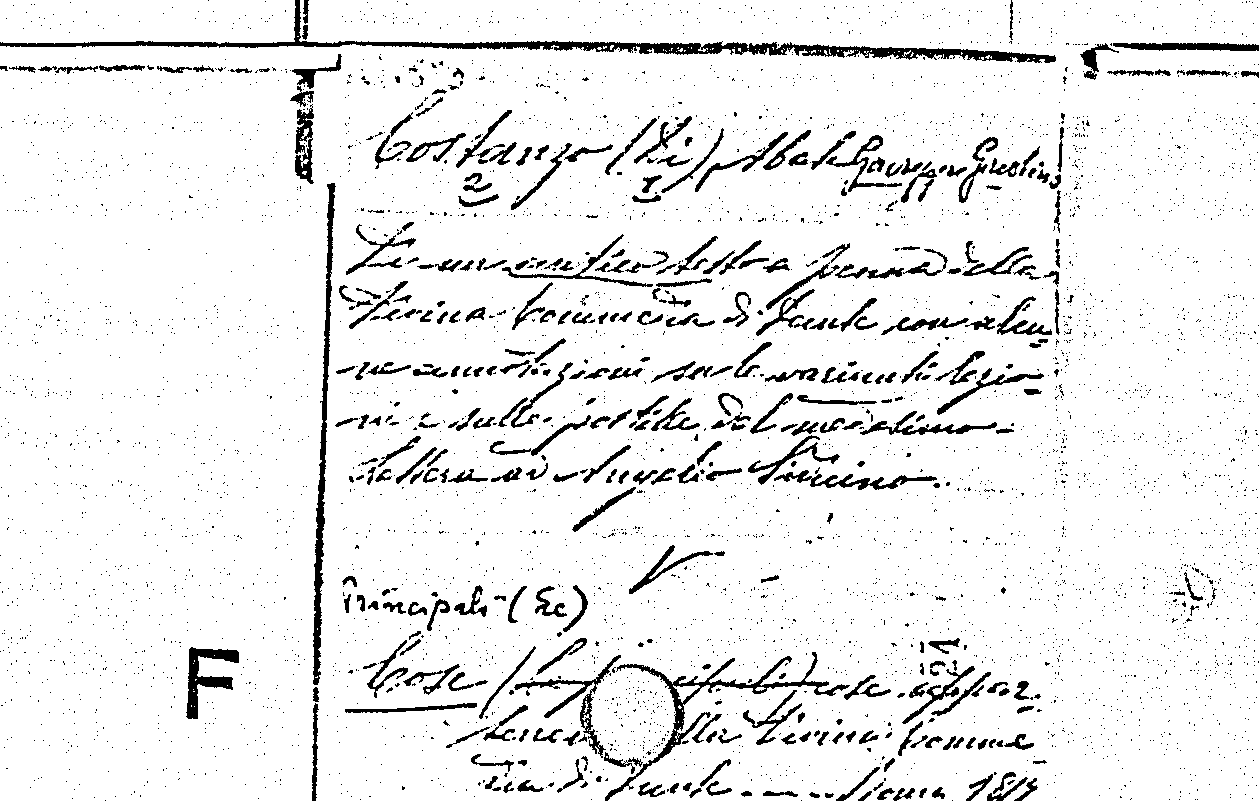 Costanzo (Di), Abate Giuseppe Giustino
2 1
Di un antico testo a penna della
Divina Commedia di Dante con alcu-
ne annotazioni su le varianti lezio-
ni e sulle postille del medesimo -
Lettera ad Angelio Sicino.
Principali (Le)
21
Cose (Le cipali) cose appar-
tenen lla Divina Comme
dia di Dante ---- Roma 1817
F